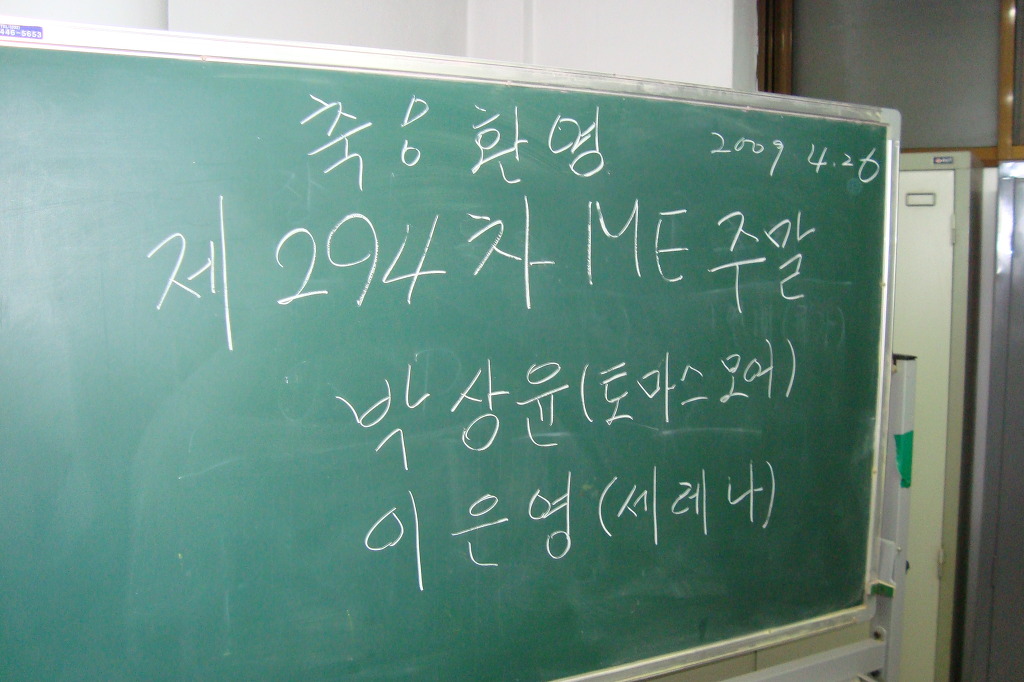 446-5653
축 ㅇ 환 영 2009 4.26
제 294차 ME 주말
박상윤(토마스모어)
이은영(세레나)